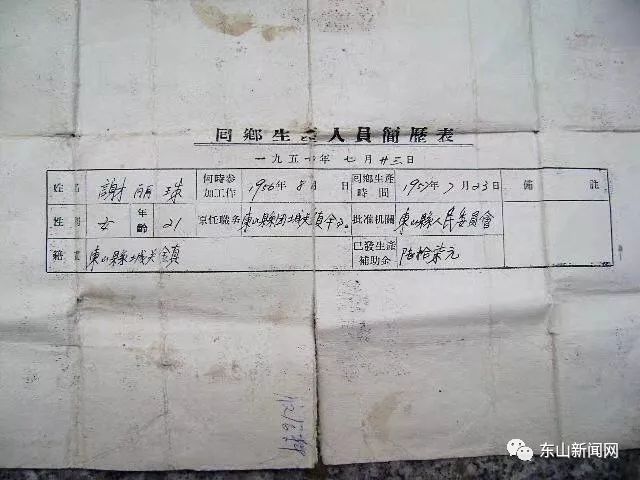 回鄉生產人員簡歷表
一九五七年七月廿三日
姓名 謝丽珠 何時參加工作 1956年8月 日 回鄉生產時間 1957年7月23日 備註
性別 女 年齡 21 原任職务 東山縣 批准机關 東山縣人民委員會
籍貫 東山縣城关鎮 已發生產補助金 陆拾柒元
东山新闻网